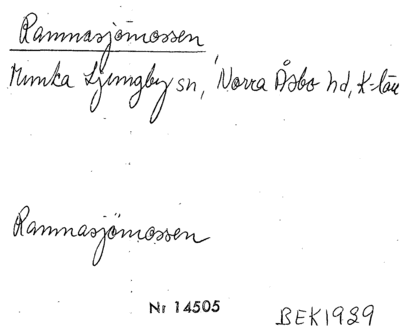 Ramnasjömossen
Munka Ljungby sn, Norra Åsbo hd, K-län
Ramnasjömossen
Nr 14505
BEK1929